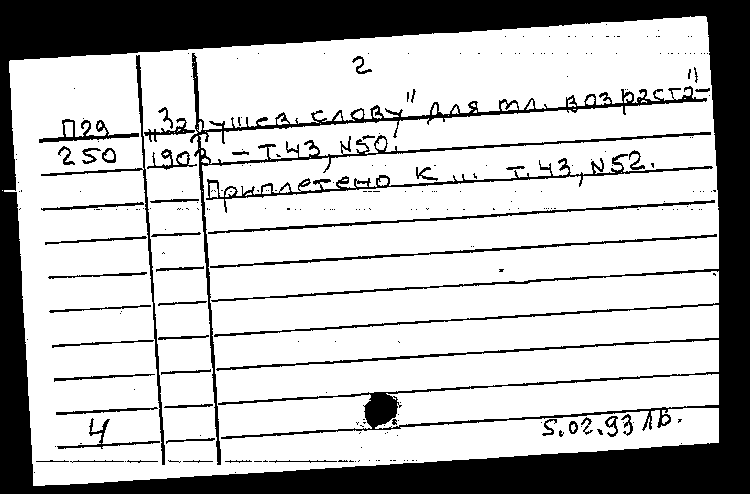 2
П29 „Задушев. слову" для мл. возраста"-
250 1903. – т.43, N50.
Приплетено к ... т.43, N52.
4
5.02.93 ЛВ.